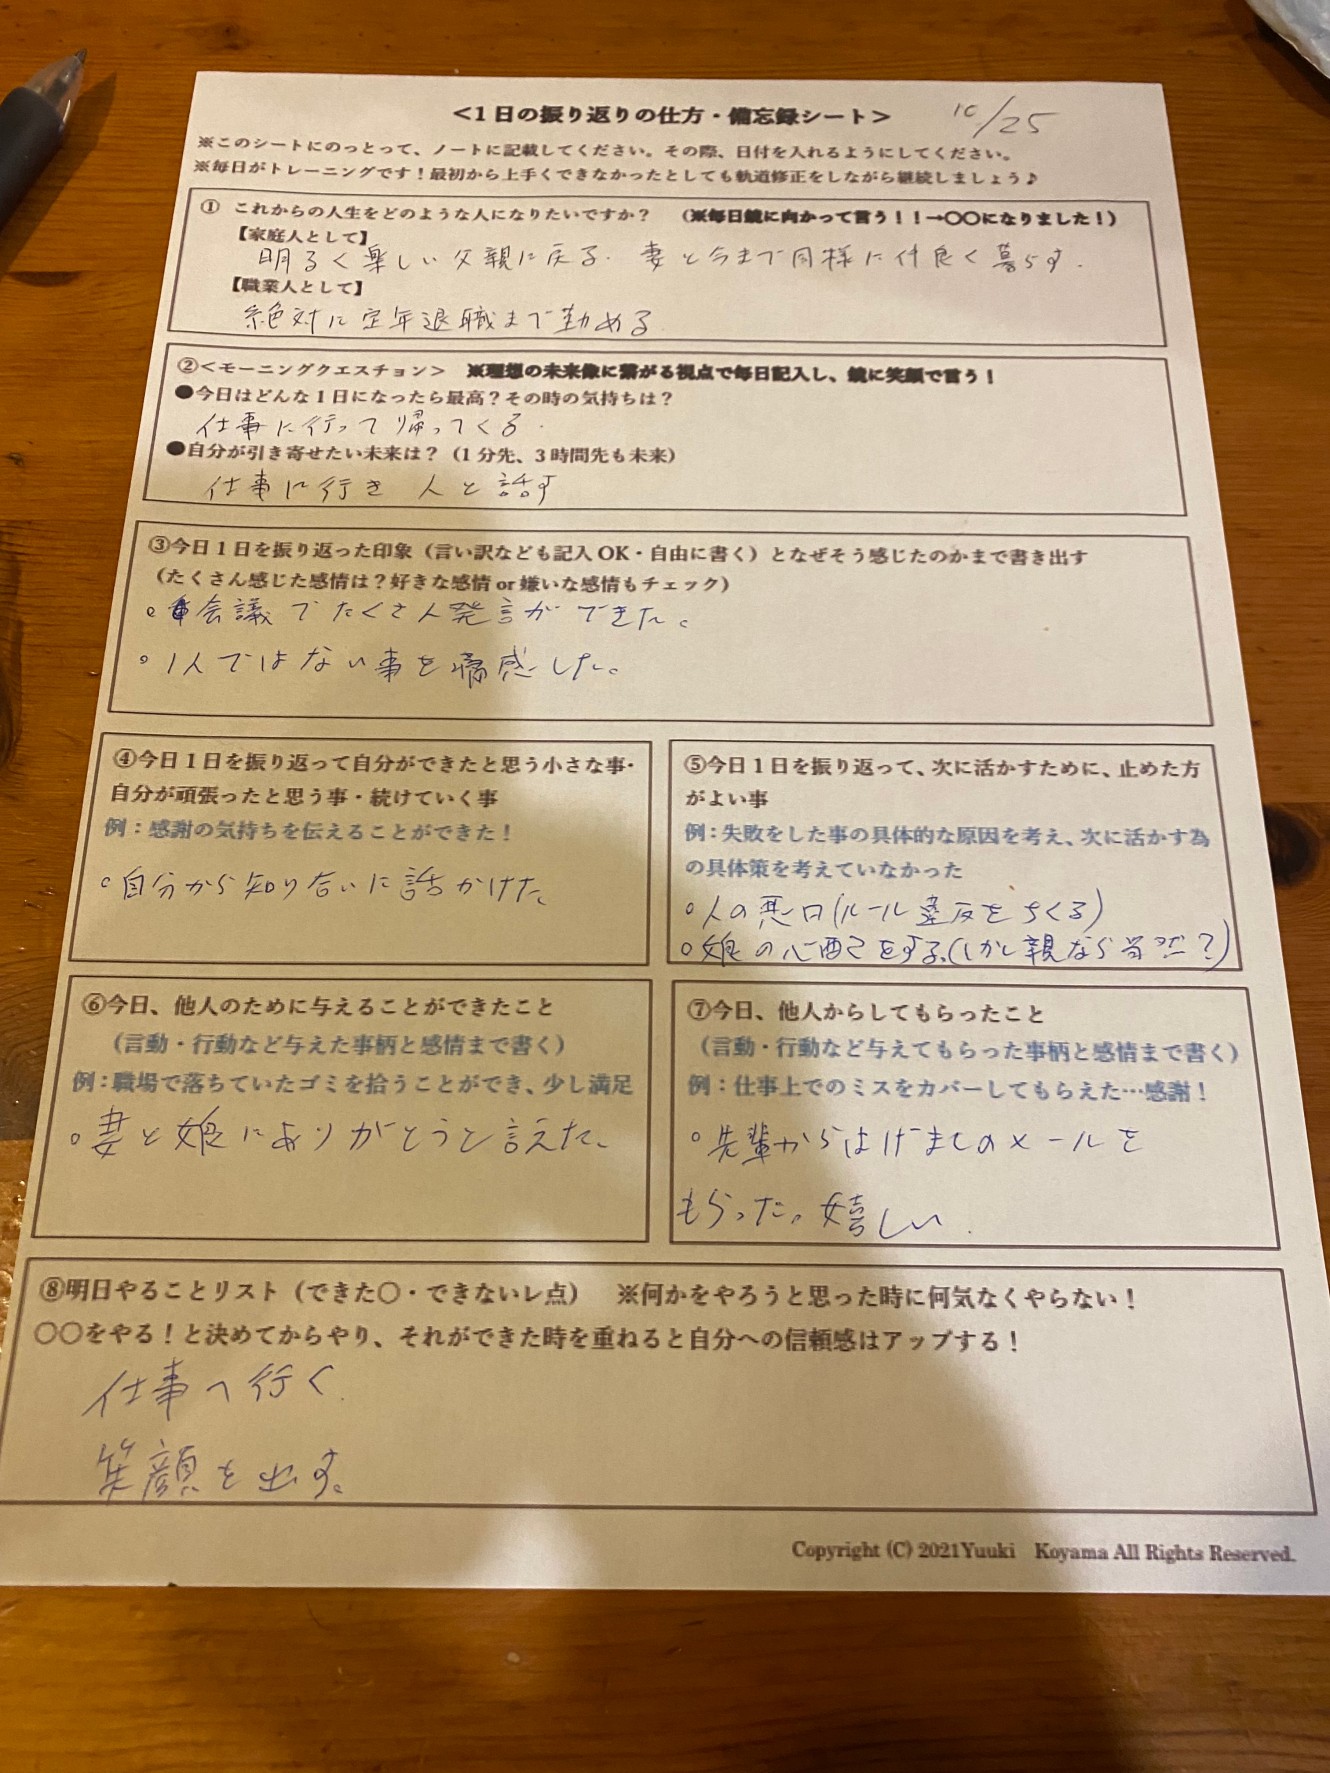 <1日の振り返りの仕方・備忘録シート>
10/25
※このシートにのっとって、ノートに記載してください。その際、日付を入れるようにしてください。
※毎日がトレーニングです！最初から上手くできなかったとしても軌道修正をしながら継続しましょう♪
① これからの人生をどのような人になりたいですか？ （※毎日鏡に向かって言う！！→〇〇になりました！）
【家庭人として】
明るく楽しい父親に戻る. 妻と今まで同様に仲良く暮らす.
【職業人として】
絶対に定年退職まで勤める.
②<モーニングクエスチョン> ※理想の未来像に繋がる視点で毎日記入し、鏡に笑顔で言う！
●今日はどんな1日になったら最高？その時の気持ちは？
仕事に行って帰ってくる.
●自分が引き寄せたい未来は？（1分先、3時間先も未来）
仕事に行き 人と話す
③今日1日を振り返った印象（言い訳なども記入OK・自由に書く）となぜそう感じたのかまで書き出す
（たくさん感じた感情は？好きな感情or嫌いな感情もチェック）
。会議でたくさん発言ができた。
。1人ではない事を痛感した。
④今日1日を振り返って自分ができたと思う小さな事・
自分が頑張ったと思う事・続けていく事
例：感謝の気持ちを伝えることができた！
。自分から知り合いに話かけた。
⑤今日1日を振り返って、次に活かすために、止めた方
がよい事
例：失敗をした事の具体的な原因を考え、次に活かす為
の具体策を考えていなかった
。人の悪口(ルール違反をちくる)
。娘の心配をする。(しかし親なら当然？)
⑥今日、他人のために与えることができたこと
（言動・行動など与えた事柄と感情まで書く）
例：職場で落ちていたゴミを拾うことができ、少し満足
。妻と娘にありがとうと言えた。
⑦今日、他人からしてもらったこと
（言動・行動など与えてもらった事柄と感情まで書く）
例：仕事上でのミスをカバーしてもらえた…感謝！
。先輩からはげましのメールを
もらった。嬉しい.
⑧明日やることリスト（できた〇・できないレ点） ※何かをやろうと思った時に何気なくやらない！
〇〇をやる！と決めてからやり、それができた時を重ねると自分への信頼感はアップする！
仕事へ行く.
笑顔を出す。
Copyright (C) 2021Yuuki Koyama All Rights Reserved.